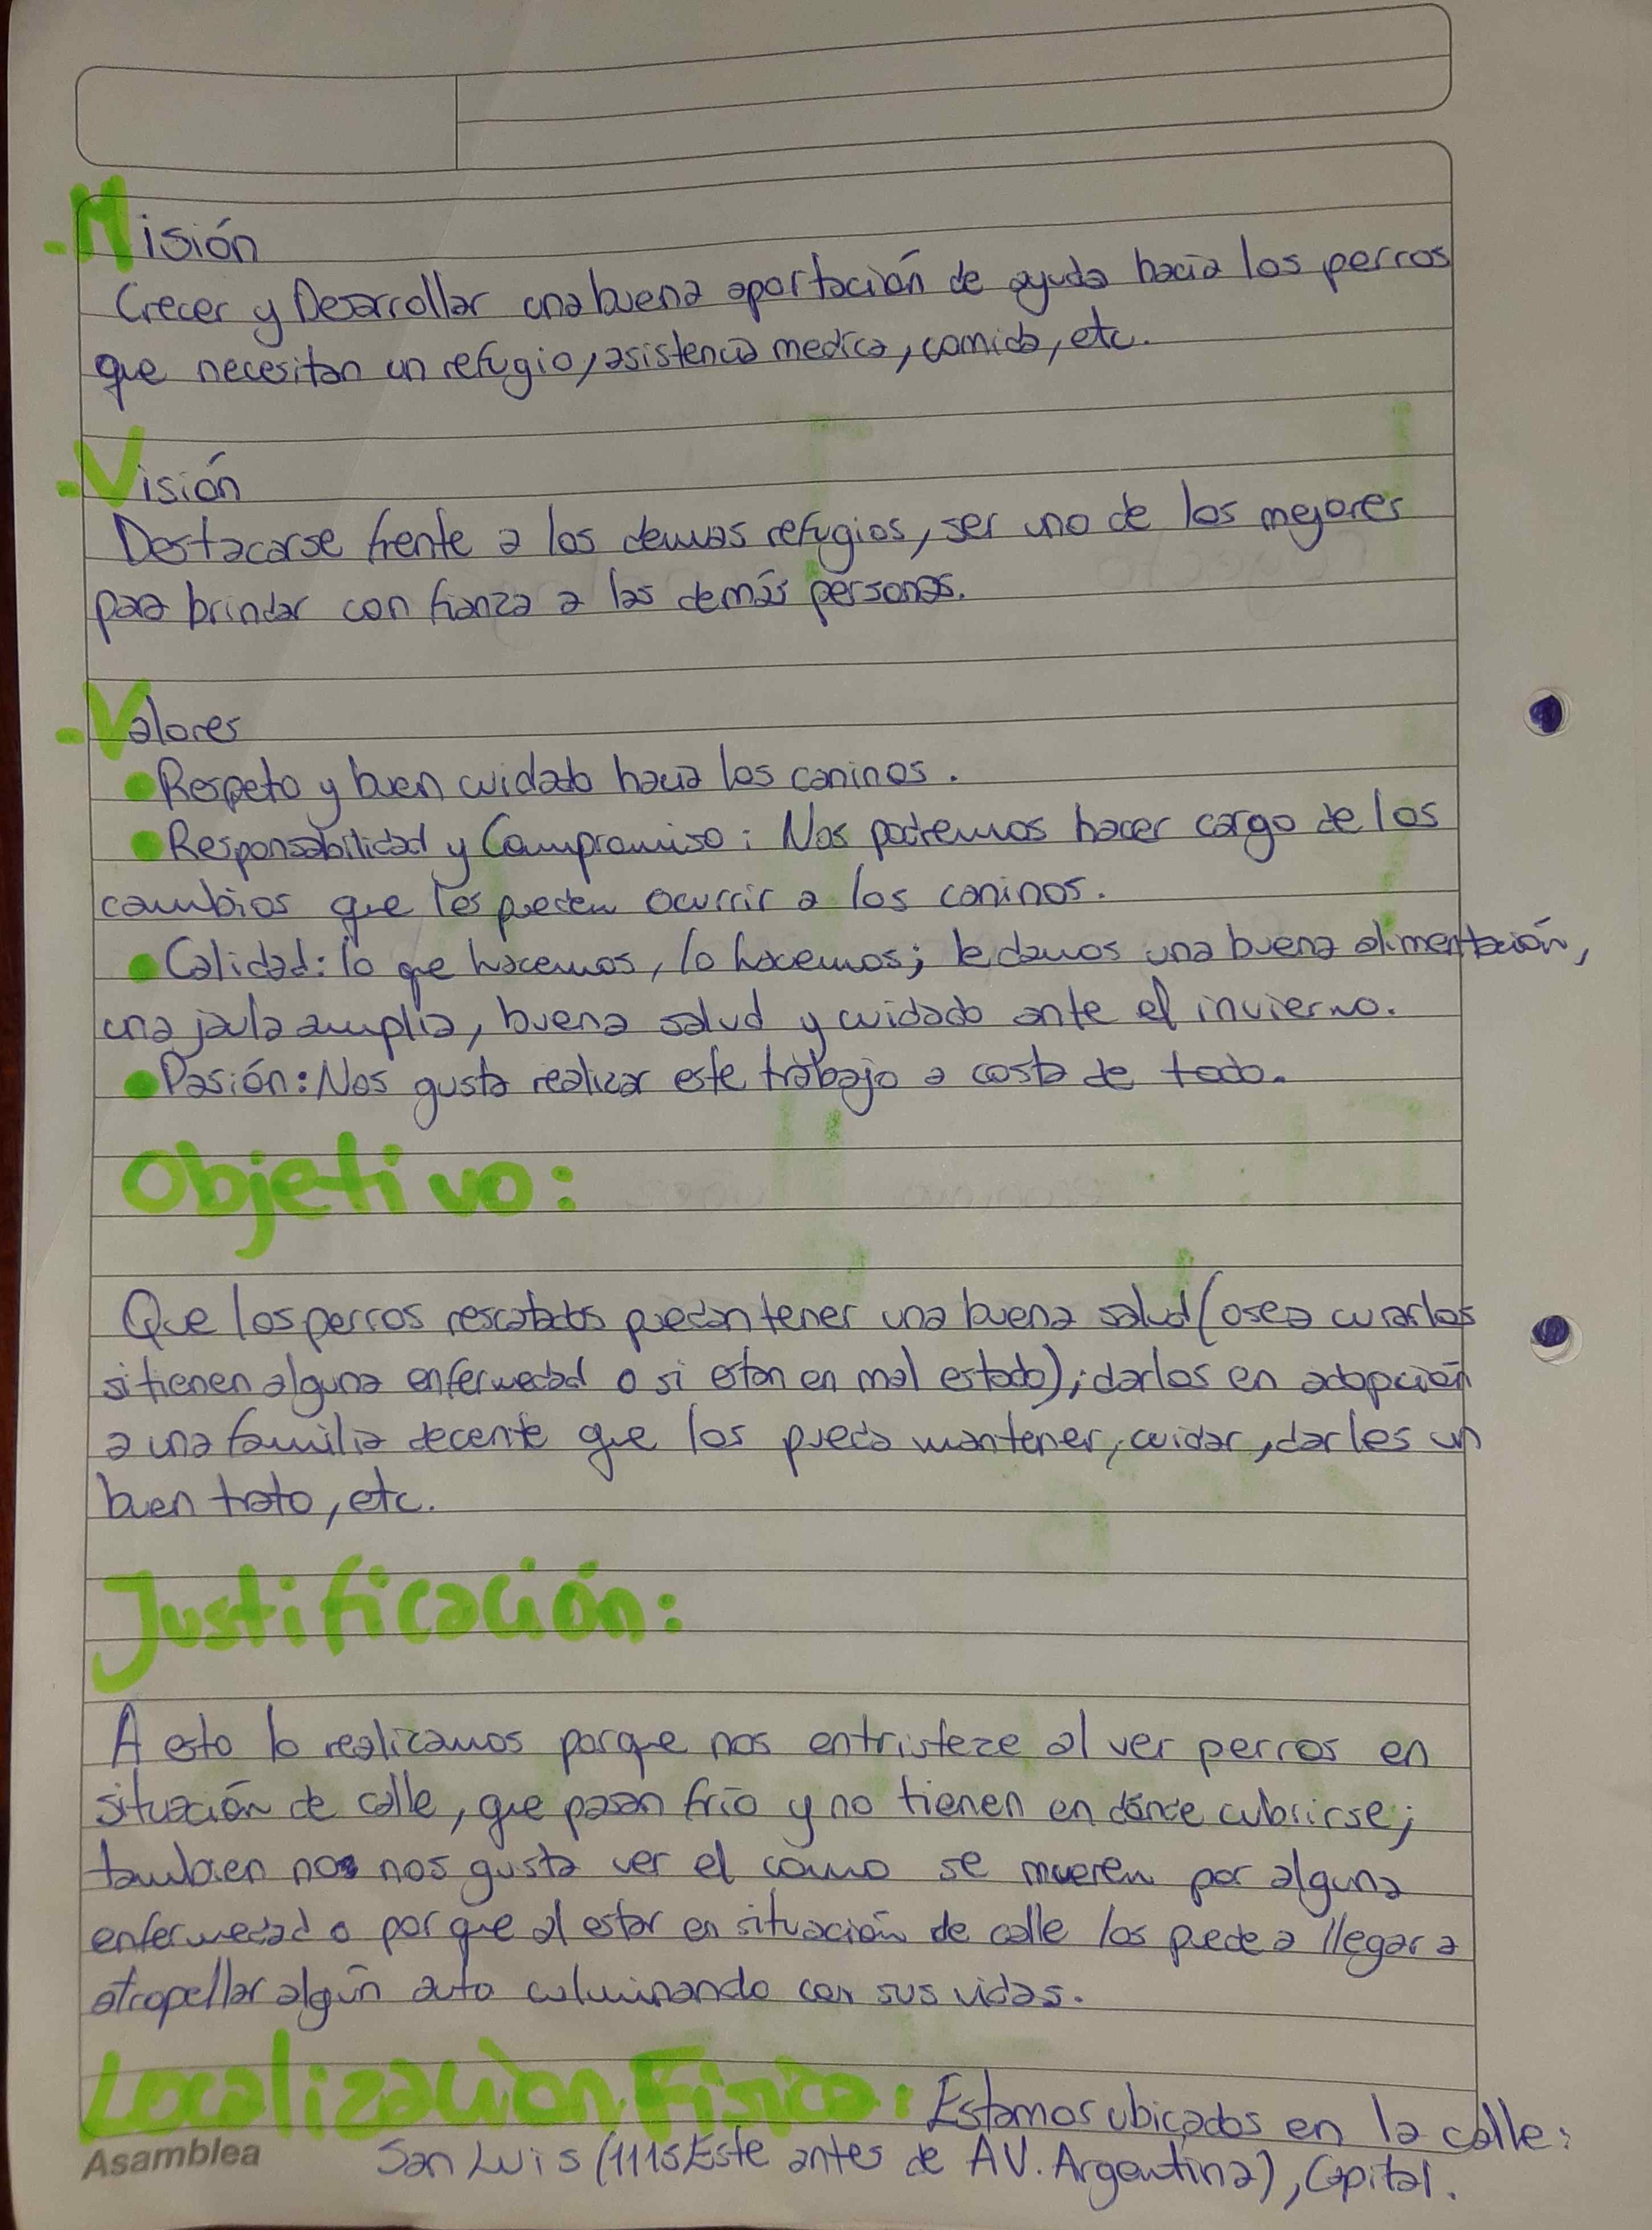 -Misión
Crecer y Desarrollar una buena aportación de ayuda hacia los perros
que necesitan un refugio, asistencia medica, comida, etc.
-Visión
Destacarse frente a los demas refugios, ser uno de los mejores
para brindar confianza a las demás personas.
-Valores
• Respeto y buen cuidado hacia los caninos.
• Responsabilidad y Compromiso: Nos podremos hacer cargo de los
cambios que les pueden ocurrir a los caninos.
• Calidad: lo que hacemos, lo hacemos; le damos una buena alimentación,
una jaula amplia, buena salud y cuidado ante el invierno.
• Pasión: Nos gusta realizar este trabajo a costa de todo.
Objetivo:
Que los perros rescatados puedan tener una buena salud (osea curarlos
si tienen alguna enfermedad o si estan en mal estado); darlos en adopción
a una familia decente que los pueda mantener, cuidar, darles un
buen trato, etc.
Justificación:
A esto lo realizamos porque nos entristeze al ver perros en
situación de calle, que pasan frío y no tienen en dónde cubrirse;
tambien no nos gusta ver el como se mueren por alguna
enfermedad o por que al estar en situación de calle los puede a llegar a
atropellar algún auto culminando con sus vidas.
Localización Física: Estamos ubicados en la calle:
Asamblea San Luis (1115 Este antes de AV. Argentina), Capital.